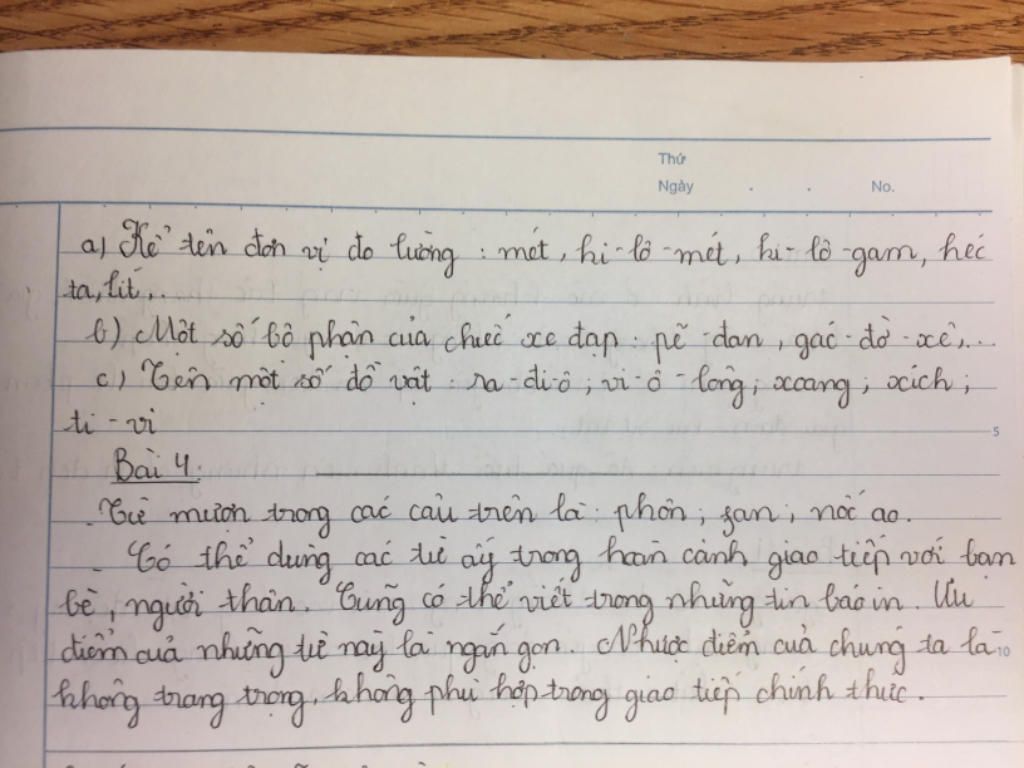 Thứ
Ngày . . No.
a) Kể tên đơn vị đo lường : mét, ki-lô-mét, ki-lô-gam, héc
ta, lít,..
b) Một số bộ phận của chiếc xe đạp : pê-đan, gác-đờ-xê,...
c) Tên một số đồ vật : ra-đi-ô ; vi-ô-lông ; xoang ; xích ;
ti-vi
5
Bài 4:
- Từ mượn trong các câu trên là : phôn ; fan ; nốc ao.
- Có thể dùng các từ ấy trong hoàn cảnh giao tiếp với bạn
bè, người thân. Cũng có thể viết trong những tin báo in. Ưu
điểm của những từ này là ngắn gọn. Nhược điểm của chúng ta là
10
không trang trọng, không phù hợp trong giao tiếp chính thức.